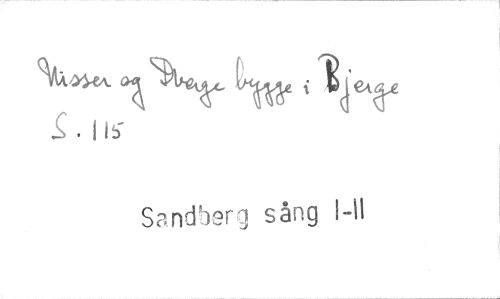 Nisser og Dverge bygge i Bjerge
S. 115
Sandberg sång I-II